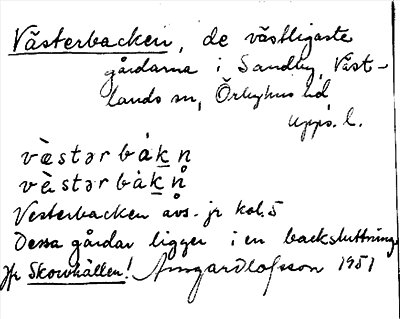 Västerbacken, de västligaste
gårdarna i Sandby, Väst-
lands sn, Örbyhus hd
Upps. l.
væ̀stərbàk̲n̥
vèstərbàk̲n̥
Vesterbacken avs. jr kol. 5
Dessa gårdar ligger i en backsluttning
Jfr Skowhällen! Olofsson 1951